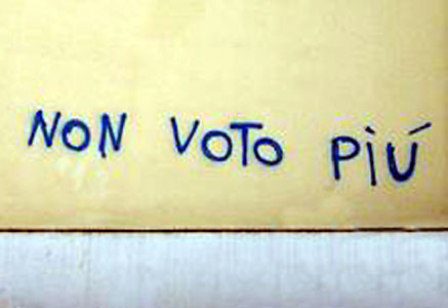 NON VOTO PIÚ